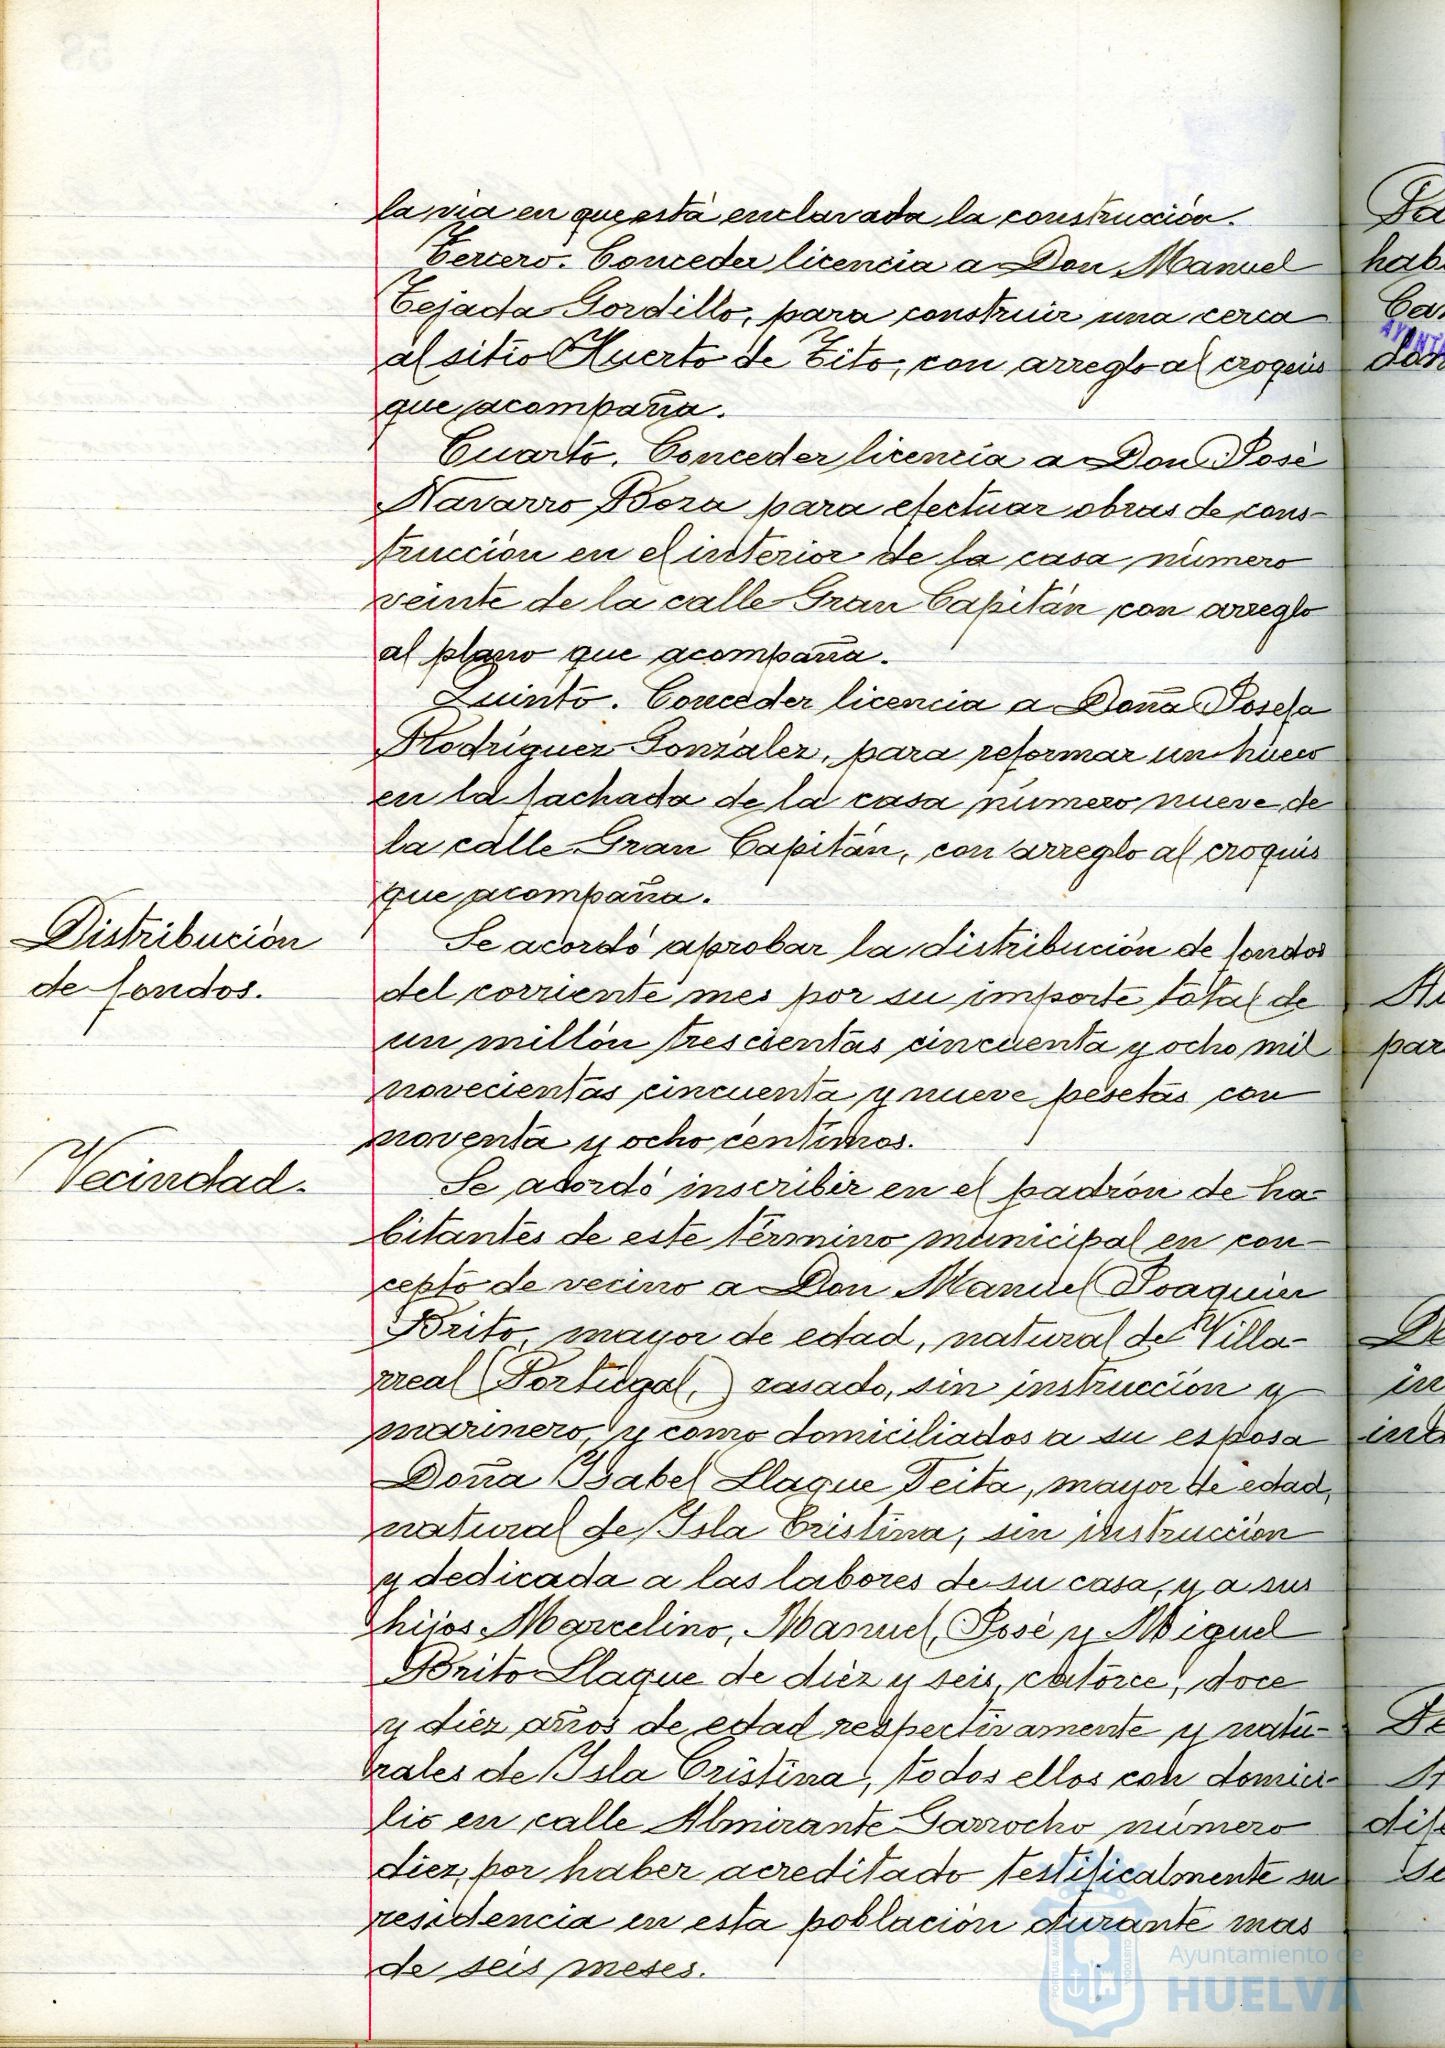 la via en que está enclavada la construcción.
Tercero. Conceder licencia a Don Manuel
Tejada Gordillo, para construir una cerca
al sitio Huerto de Tito, con arreglo al croquis
que acompaña.
Cuarto. Conceder licencia a Don José
Navarro Boza para efectuar obras de cons-
trucción en el interior de la casa número
veinte de la calle Gran Capitán con arreglo
al plano que acompaña.
Quinto. Conceder licencia a Doña Josefa
Rodríguez González, para reformar un hueco
en la fachada de la casa número nueve de
la calle Gran Capitán, con arreglo al croquis
que acompaña.
Distribución
de fondos.
Se acordó aprobar la distribución de fondos
del corriente mes por su importe total de
un millón trescientas cincuenta y ocho mil
novecientas cincuenta y nueve pesetas con
noventa y ocho céntimos.
Vecindad.
Se acordó inscribir en el padrón de ha-
bitantes de este término municipal en con-
cepto de vecino a Don Manuel Joaquin
Brito, mayor de edad, natural de Villa-
rreal (Portugal,) casado, sin instrucción y
marinero, y como domiciliados a su esposa
Doña Ysabel Llaque Feita, mayor de edad,
natural de Ysla Cristina, sin instrucción
y dedicada a las labores de su casa, y a sus
hijos Marcelino, Manuel, José y Miguel
Brito Llaque de diez y seis, catorce, doce
y diez años de edad respectivamente y natu-
rales de Ysla Cristina, todos ellos con domici-
lio en calle Almirante Garrocho número
diez, por haber acreditado testificalmente su
residencia en esta población durante mas
de seis meses.
Ayuntamiento de
HUELVA